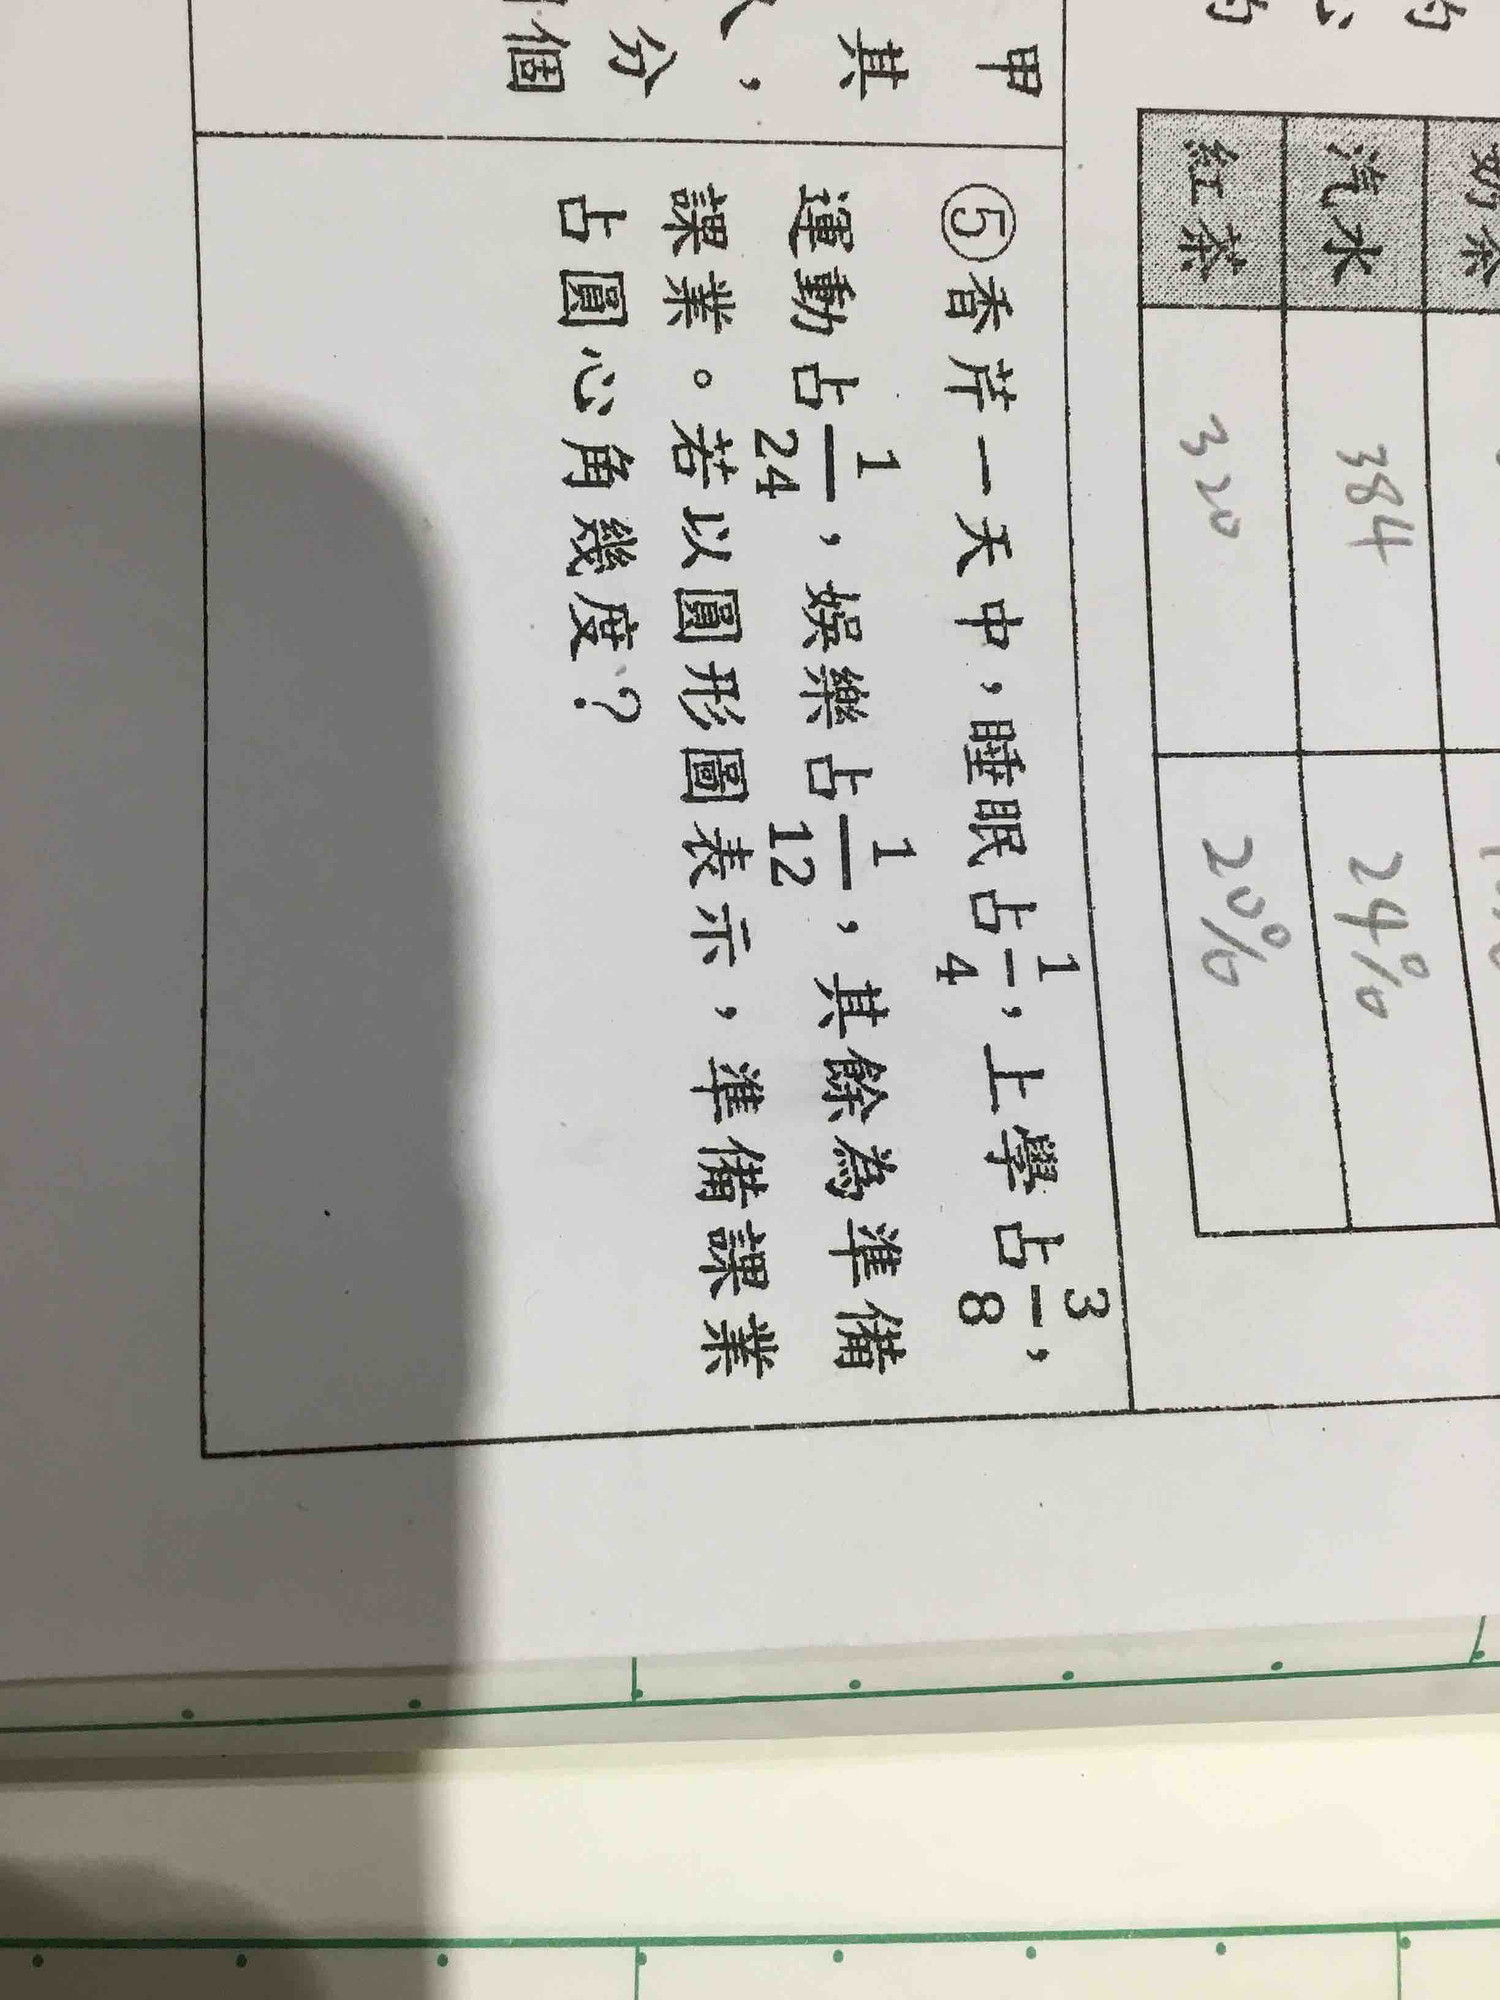 甲
其
，
分
個
奶茶
汽水 384 24%
紅茶 320 20%
⑤香芹一天中，睡眠占1/4，上學占3/8，
運動占1/24，娛樂占1/12，其餘為準備
課業。若以圓形圖表示，準備課業
占圓心角幾度？